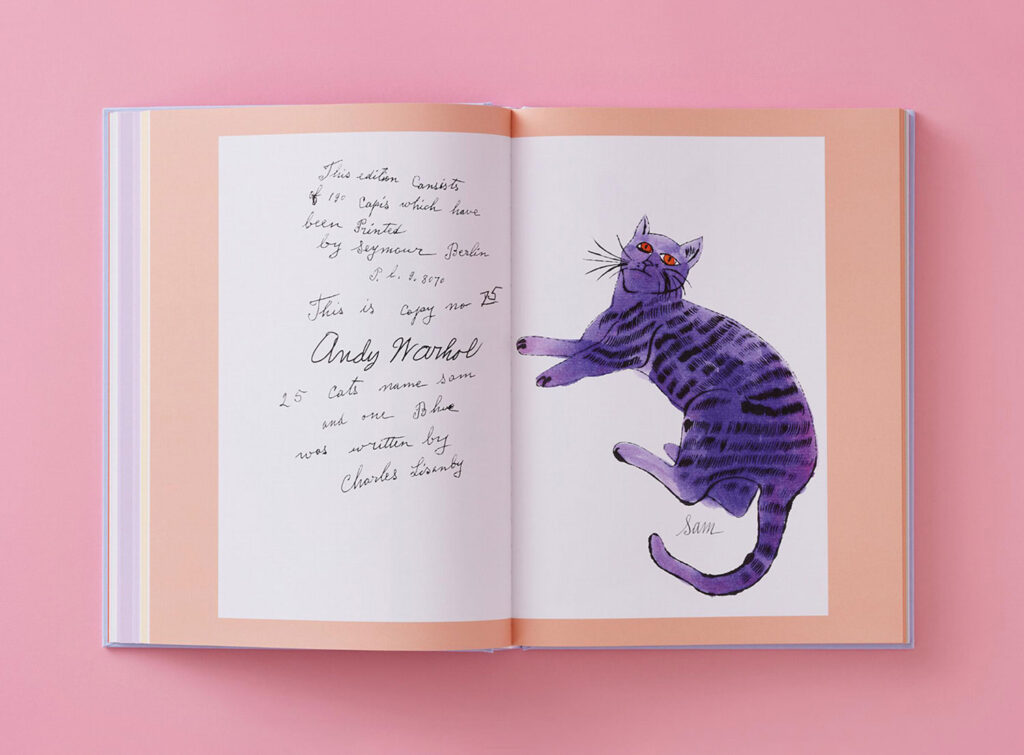 This edition Consists
of 190 Capis which have
been Printed
by Seymour Berlin
P. L. 9. 8070
This is copy no 75
Andy Warhol
25 Cats name sam
and one Blue
was written by
Charles Lisanby
Sam